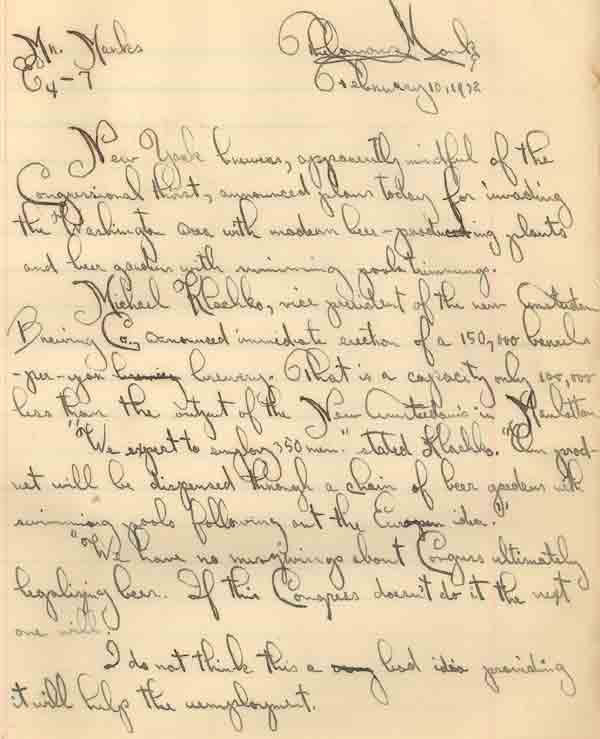 Mr. Manks
E 4-7
Thelonious Monk
February 10, 1932
New York brewers, apparently mindful of the
Congressional thirst, announced plans today for invading
the Washington area with modern beer-producing plants
and beer gardens with swimming pools trimmings.
Michael Klachko, vice president of the new Amsterdam
Breiwing Co., announced immediate erection of a 150,000 barrels
-per-year brewery. That is a capacity only 100,000
less than the output of the New Amsterdam's in Manhattan
"We expect to employ 350 men." stated Klachko. "Our prod-
uct will be dispensed through a chain of beer gardens with
swimming pools following out the European idea."
"We have no misgivings about Congress ultimately
legalizing beer. If this Congress doesn't do it the next
one will.
I do not think this a bad idea providing
it will help the unemployment.